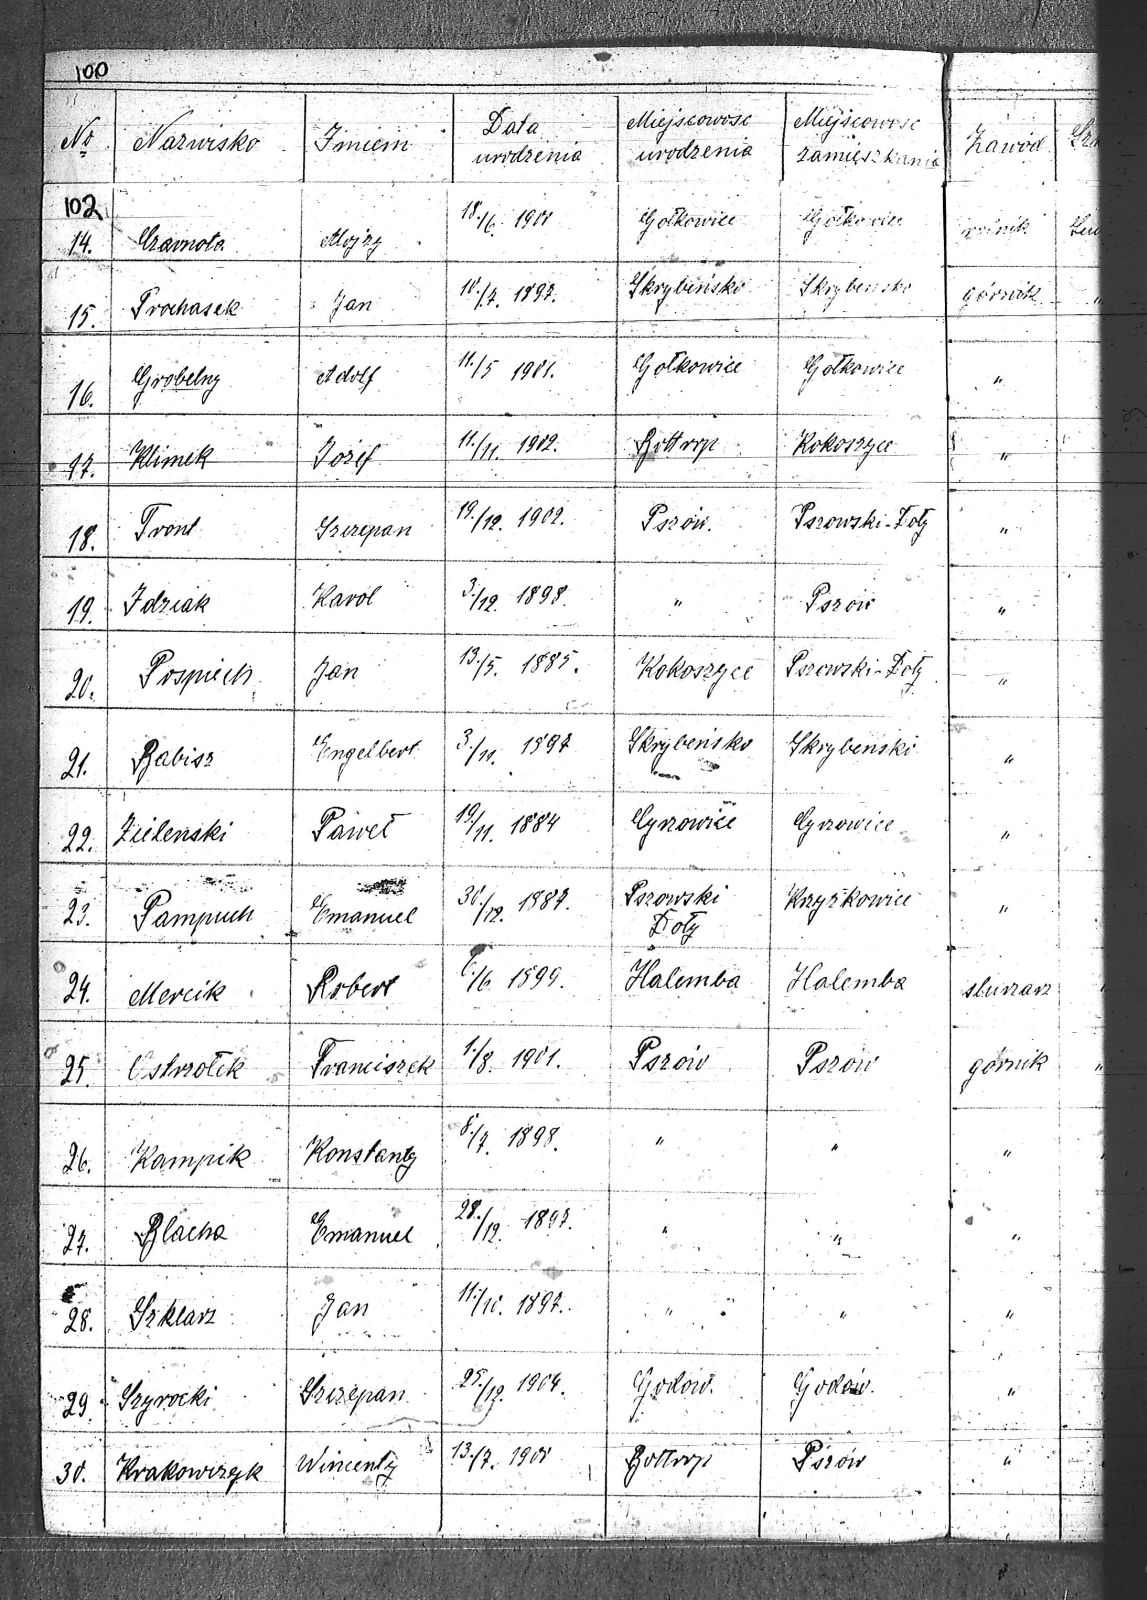 100
No Nazwisko Imiem Data urodzenia Miejscowosc urodzenia Miejscowosc zamieszkania Zawód
102
14. Czarnota Alojzy 18./6. 1900 Gołkowice Gołkowice rolnik
15. Prochasek Jan 10./7. 1897. Skrybeńsko Skrybensko górnik "
16. Grobelny Adolf 11./5 1901. Gołkowice Gołkowice "
17. Klimek Józef 11./11. 1902. Bottrop Kokoszyce "
18. Tront Szczepan 19./12. 1902. Pszów. Pszowski-Doły "
19. Idziak Karol 3./12. 1898. " Pszów "
20. Pospiech Jan 13./5. 1885. Kokoszyce Pszowski-Doły "
21. Babisz Engelbert 3./11. 1897 Skrybeńsko Skrybeńsko "
22. Zielenski Paweł 19/11. 1884 Cyrzowice Cyrzowice "
23. Pampuch Emanuel 30./12. 1887. Pszowski Doły Krzyżkowice "
24. Mercik Robert /6. 1899. Halemba Halemba sluszarz "
25. Ostrzołek Franciszek 1./8. 1901. Pszów Pszów górnik "
26. Kampik Konstanty 8./7. 1898. " " "
27. Blacha Emanuel 28./12. 1897. " " "
28. Szklarz Jan 11./10. 1897. " " "
29. Szyrocki Szczepan 25./12. 1904. Godów. Godów. "
30. Krakowczyk Wincenty 13./7. 1900 Bottrop Pszów "